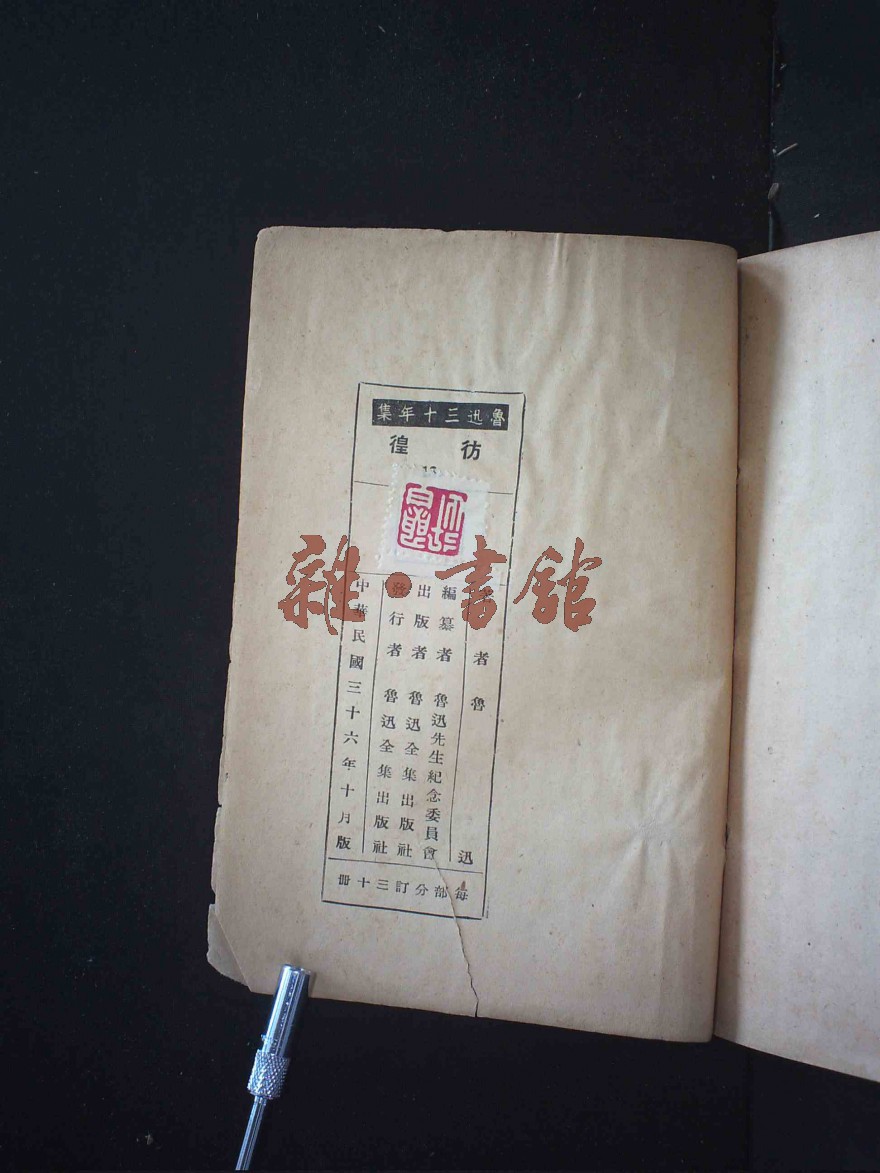 魯迅三十年集
彷徨
13
者 魯迅
編纂者 魯迅先生紀念委員會
出版者 魯迅全集出版社
發行者 魯迅全集出版社
中華民國三十六年十月版
每部分訂三十冊
雜·書館